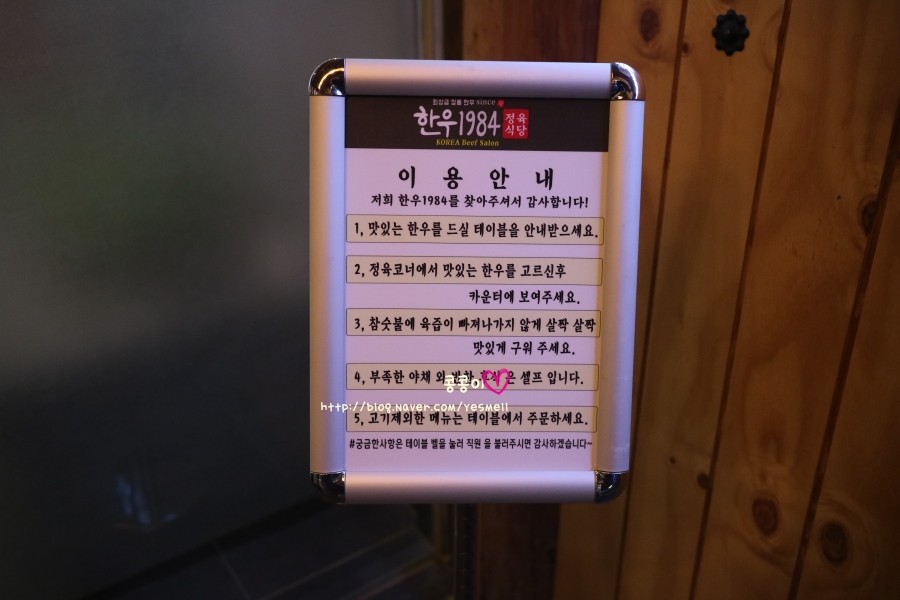 최상급 명품 한우 since
한우1984 정육식당
KOREA Beef Salon
이 용 안 내
저희 한우1984를 찾아주셔서 감사합니다!
1, 맛있는 한우를 드실 테이블을 안내받으세요.
2, 정육코너에서 맛있는 한우를 고르신후
카운터에 보여주세요.
3, 참숯불에 육즙이 빠져나가지 않게 살짝 살짝
맛있게 구워 주세요.
4, 부족한 야채 와 은 셀프 입니다.
콩콩이
http://blog.naver.com/yesmell
5, 고기제외한 메뉴는 테이블에서 주문하세요.
#궁금한사항은 테이블 벨을 눌러 직원 을 불러주시면 감사하겠습니다~